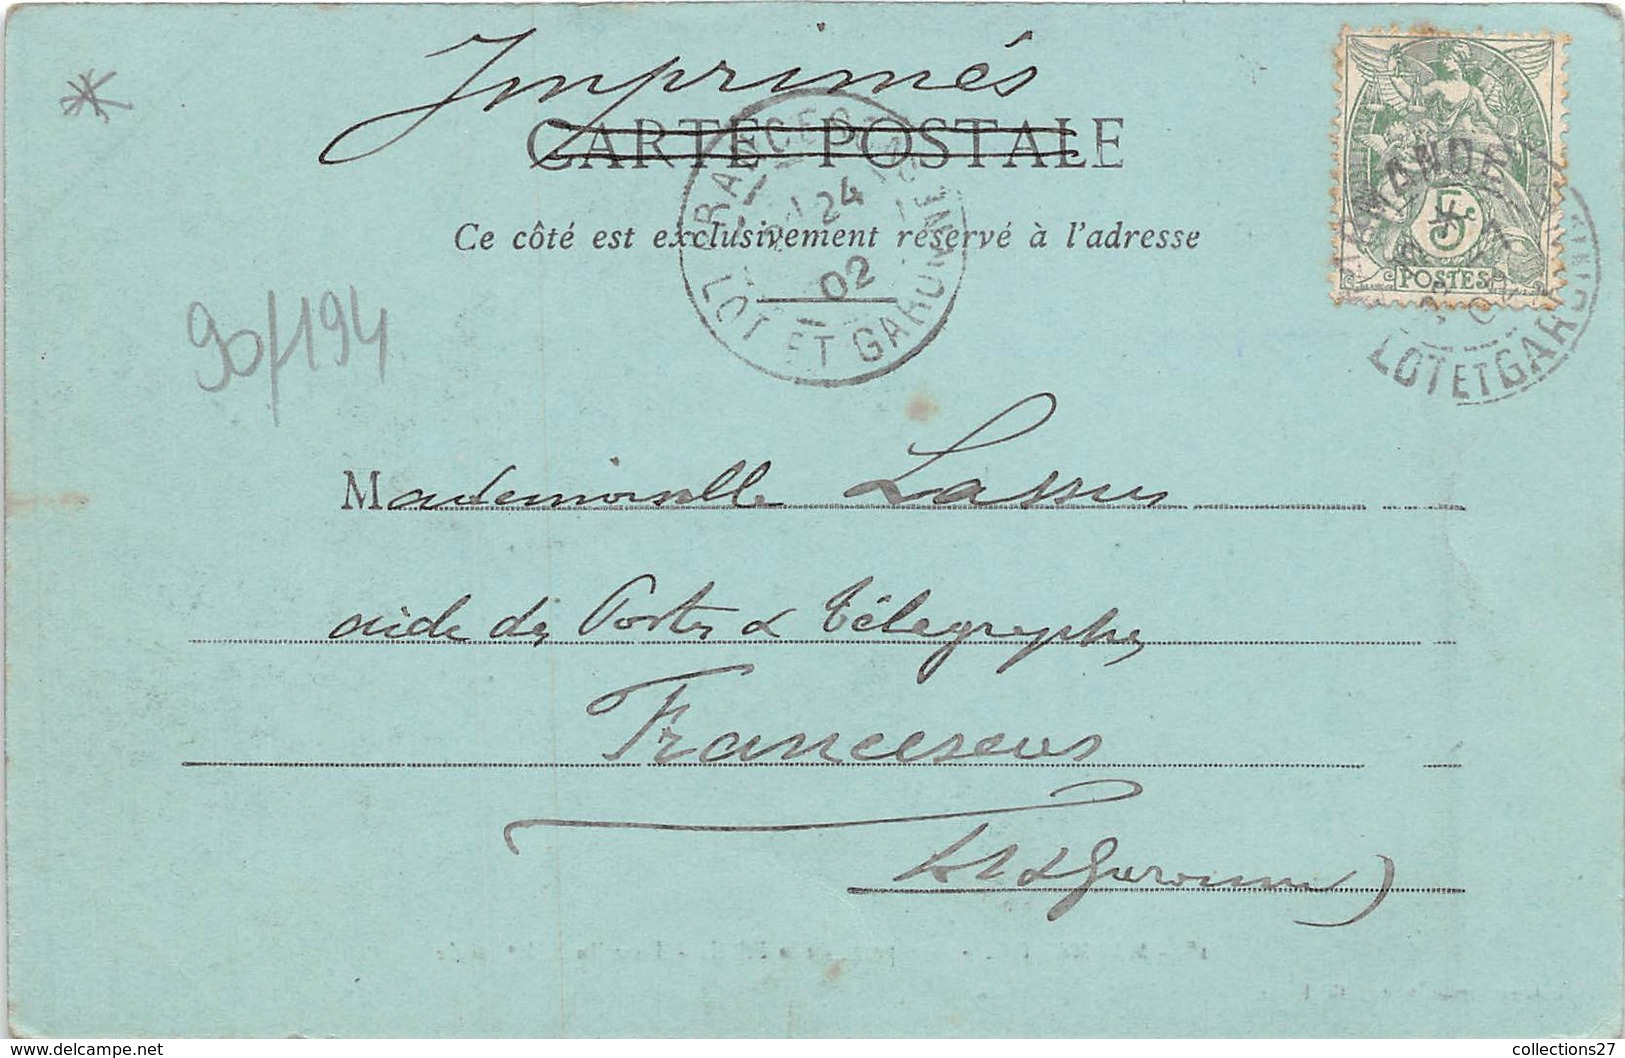 Imprimés
CARTE POSTALE
Ce côté est exclusivement réservé à l'adresse
24
02
LOT ET GARONNE
5c
POSTES
LOT ET GAR
90/194
Mademoiselle Lassus
aide des Postes & Télégraphes
Francescas
Lot & Garonne)
www.delcampe.net
collections27